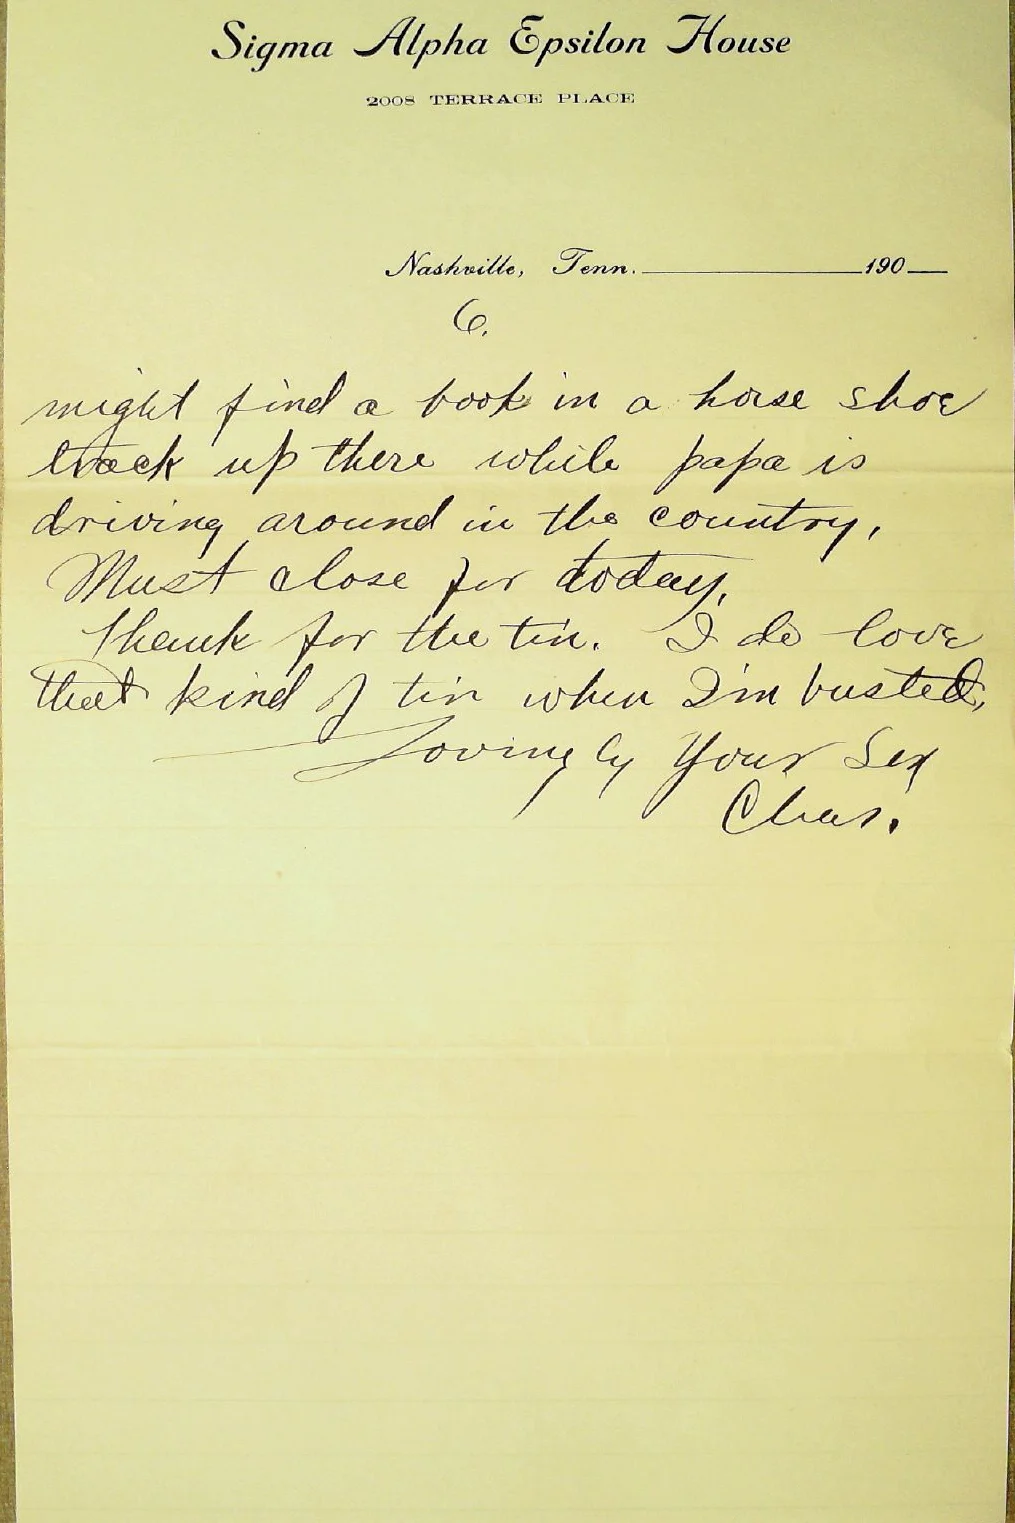 Sigma Alpha Epsilon House
2008 TERRACE PLACE
Nashville, Tenn. 190
6.
might find a book in a horse shoe
track up there while papa is
driving around in the country,
Must close for today,
Thank for the tin. I do love
that kind of tin when I'm busted,
Lovingly Your
Chas.